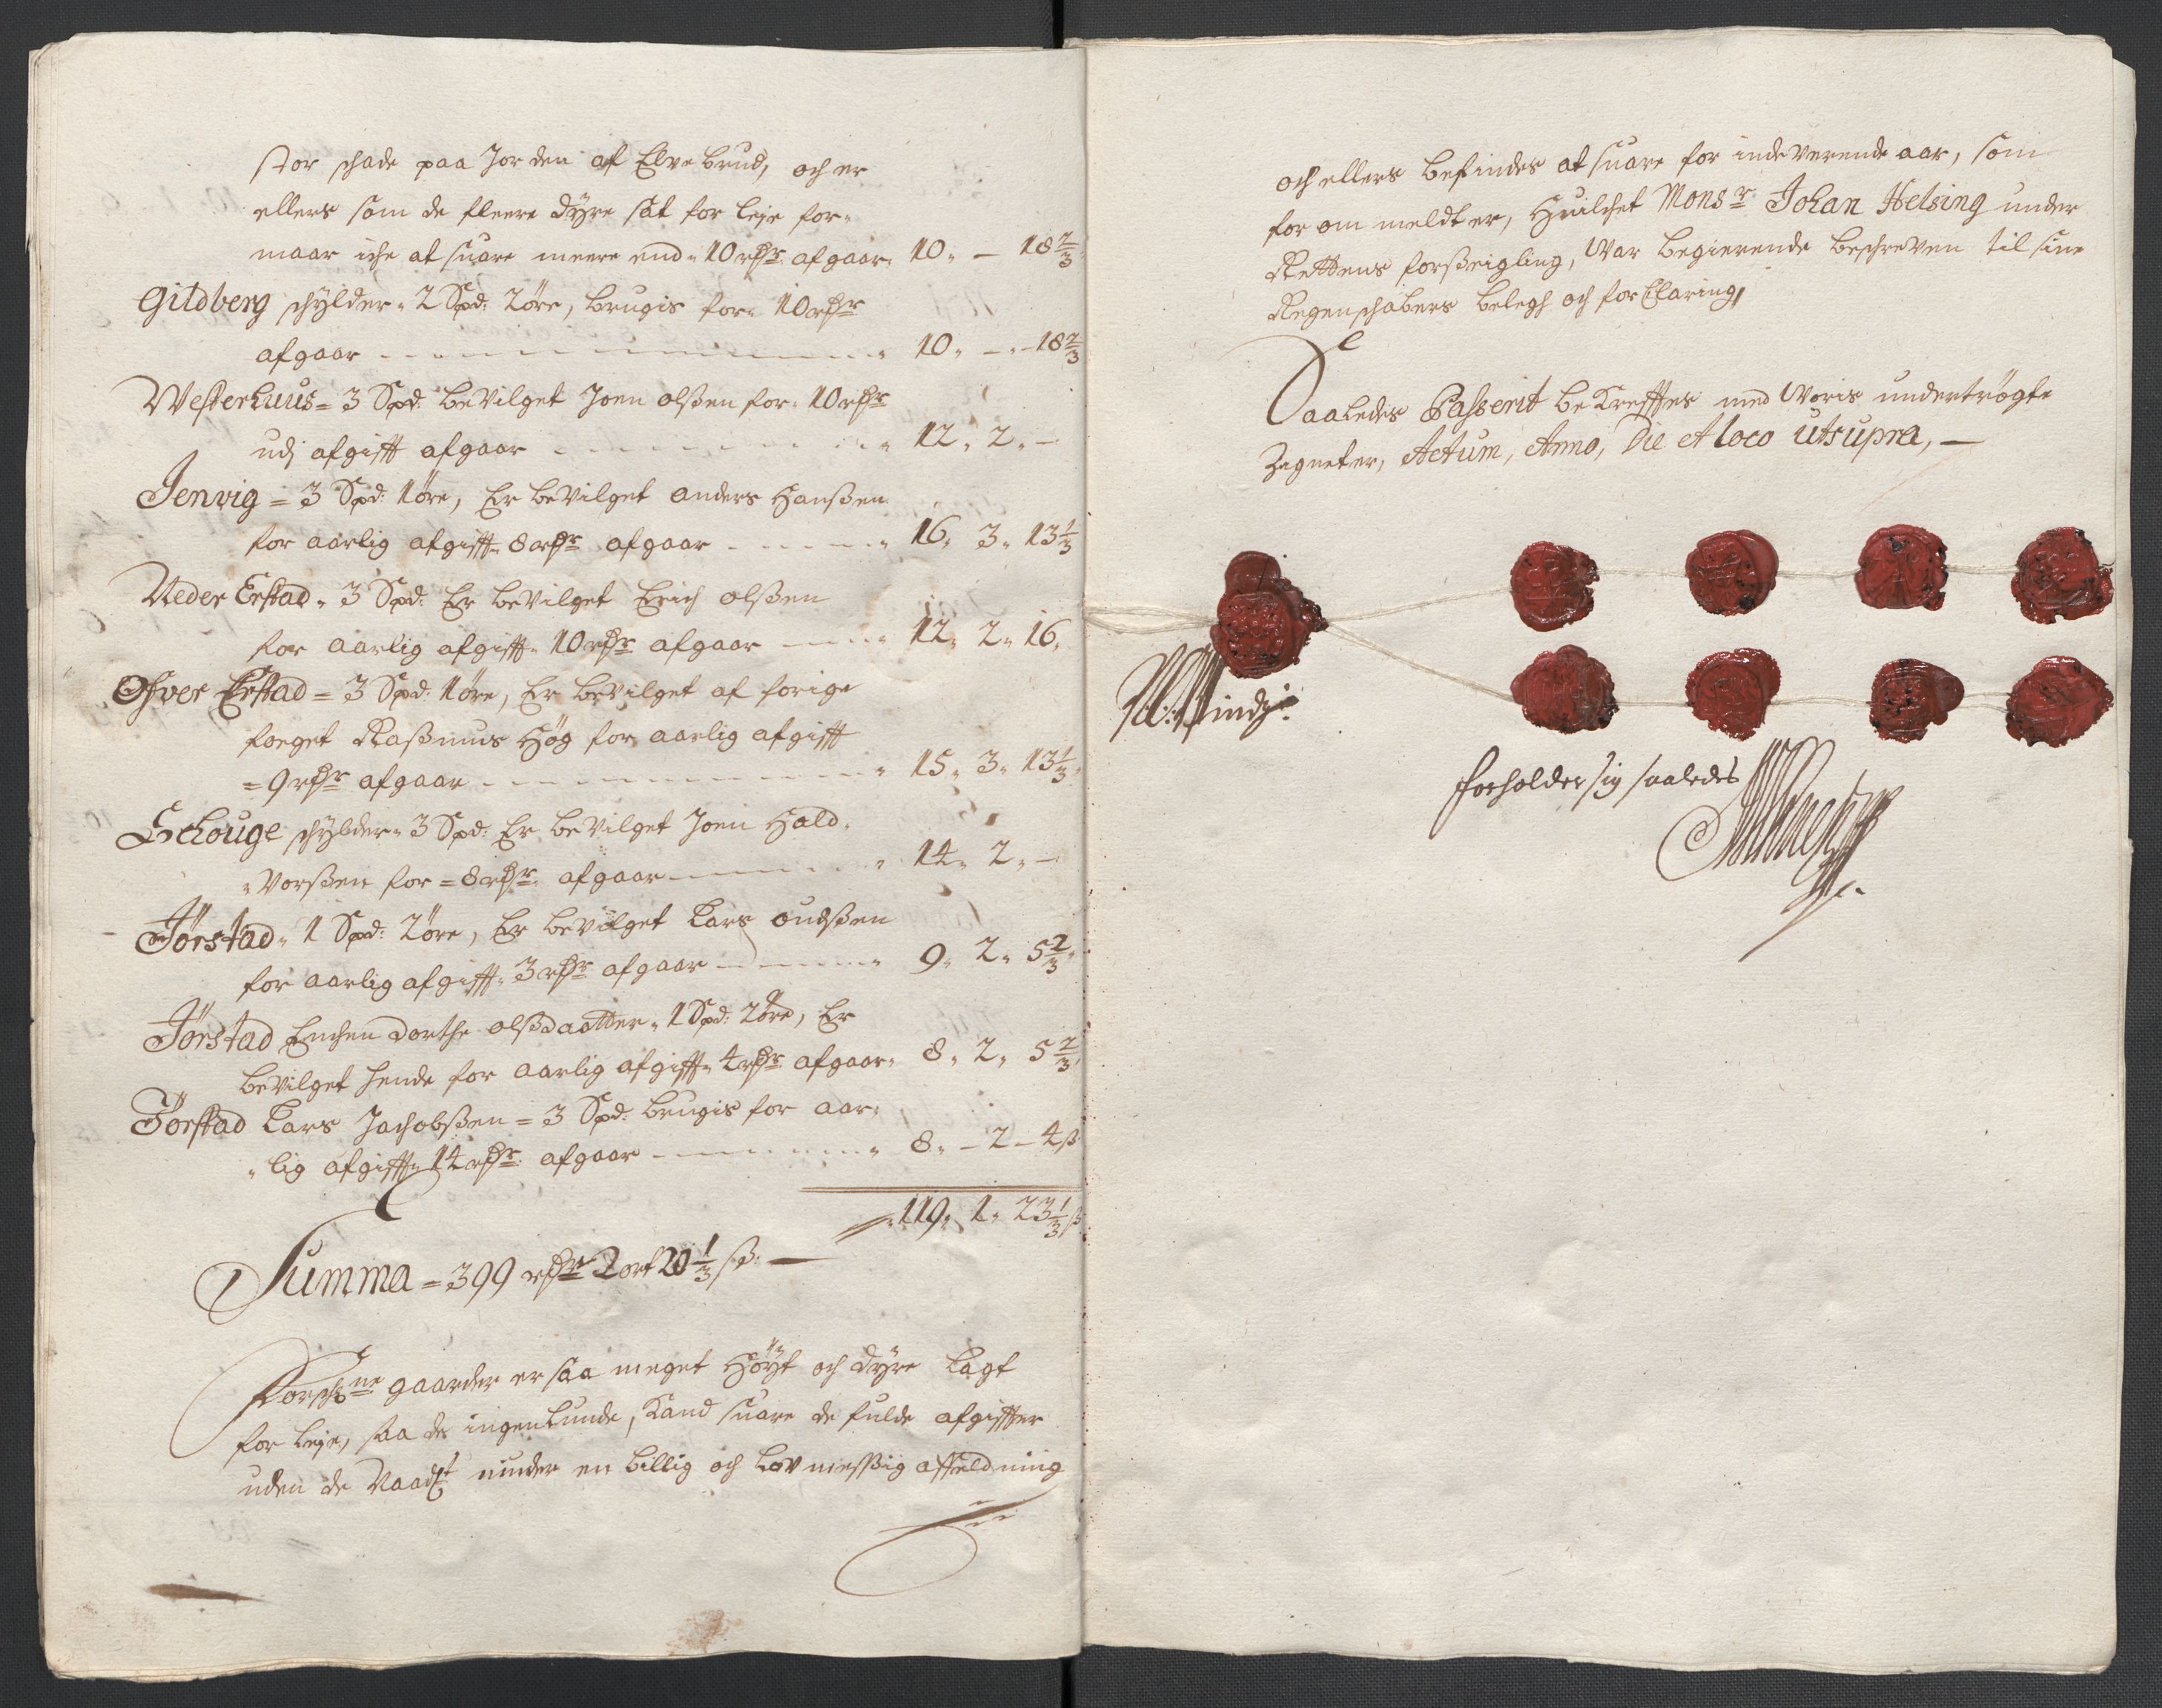 stor schade paa Jorden af Elvebrud, och er
ellers som de fleere dyre sat for leje for-
maar iche at suare meere end 10 rdr afgaar 10 - 18 2/3
Gildberg schylder 2 Spd: 2 öre, brugis for 10 rdr
afgaar 10 - 18 2/3
Westerhuus = 3 Spd: beVilget Joen olßen for 10 rdr
udj afgifft afgaar 12. 2. -
Jenvig = 3 Spd: 1 öre, Er beVilget anders Hanßen
for aarlig afgifft 8 rdr afgaar 16. 3. 13 1/3
Neder Erstad 3 Spd: Er beVilget Erich olßen
for aarlig afgifft 10 rdr afgaar 12. 2. 16.
Ofver Erstad = 3 Spd: 1 öre, Er beVilget af forige
foeget Raßmus Hög for aarlig afgifft
= 9 rdr afgaar 15. 3. 13 1/3
Echouge schylder 3 Spd: Er beVilget Joen Hald-
Vorßen for = 8 rdr afgaar 14. 2. -
Jörstad 1 Spd: 2 öre, Er beVilget Lars oudßen
for aarlig afgifft 3 rdr afgaar 9. 2. 5 2/3
Jörstad Enchen dorthe olßdaatter 1 Spd: 2 öre, Er
beVilget hende for aarlig afgifft 4 rdr afgaar 8. 2. 5 2/3
Jörstad Lars Jachobßen = 3 Spd: brugis for aar-
lig afgifft 14 rdr afgaar 8. - 2 - 4 ß
119. 1. 23 1/3 ß
Summa = 399 rdr 2 ort 20 1/3 ß:
Forschne gaarder er saa meget Höyt och dyre lagt
for leje, saa de ingenlunde, kand suare de fulde afgiffter
uden de Naadt niuder en billig och lovmeßig affeldning
och ellers befindes at suare for indeverende aar, som
for om meldt er, Huilchet Monsr Johan Helsing under
Rettens forßeigling, War begierende beschreven til sine
Regenschabers belegh och forklaring,
Saaledes Passerit bekreffter med Woris undertrögte
Zigneter, Actum, Anno, Die et loco ut supra,
forholder sig saaledes